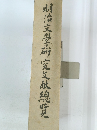 明治文學研究文献總覽